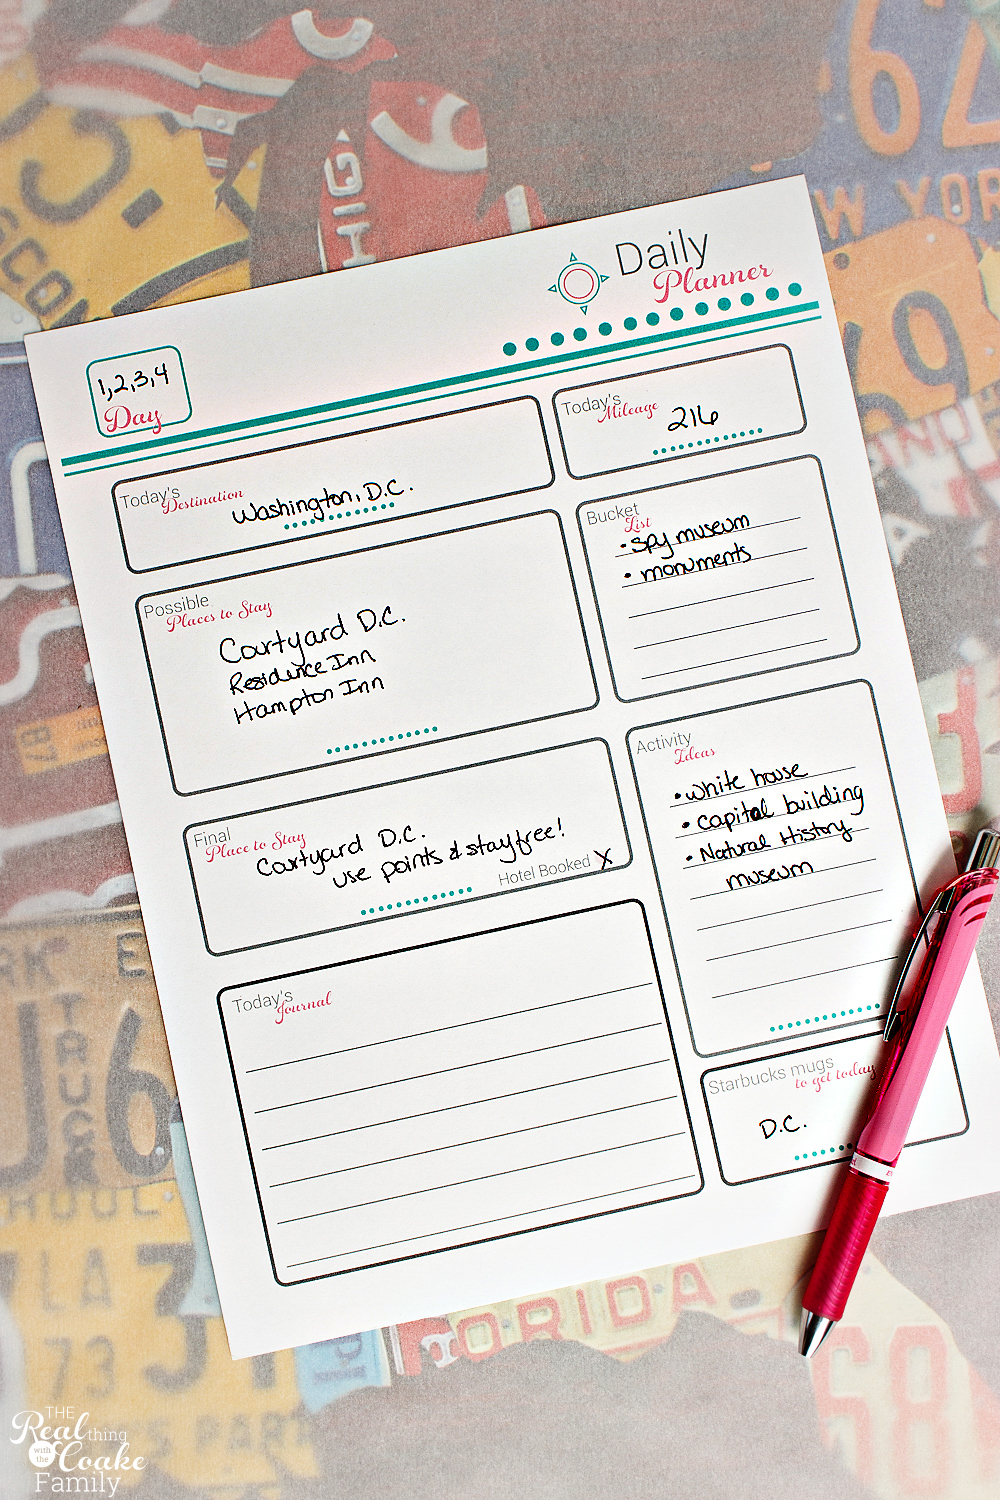 Daily
Planner
1,2,3,4
Day
Today's
Mileage
216
Today's
Destination
Washington, D.C.
Bucket
List
• spy museum
• monuments
Possible
Places to Stay
Courtyard D.C.
Residence Inn
Hampton Inn
Activity
Ideas
• white house
• capital building
• Natural History
museum
Final
Place to Stay
Courtyard D.C.
use points & stay free!
Hotel Booked X
Today's
Journal
Starbucks mugs
to get today
D.C.
62
W YORK
OHIO
TRUCK
LA
73
FLORIDA
68
THE
Real thing
with the
Coake
Family